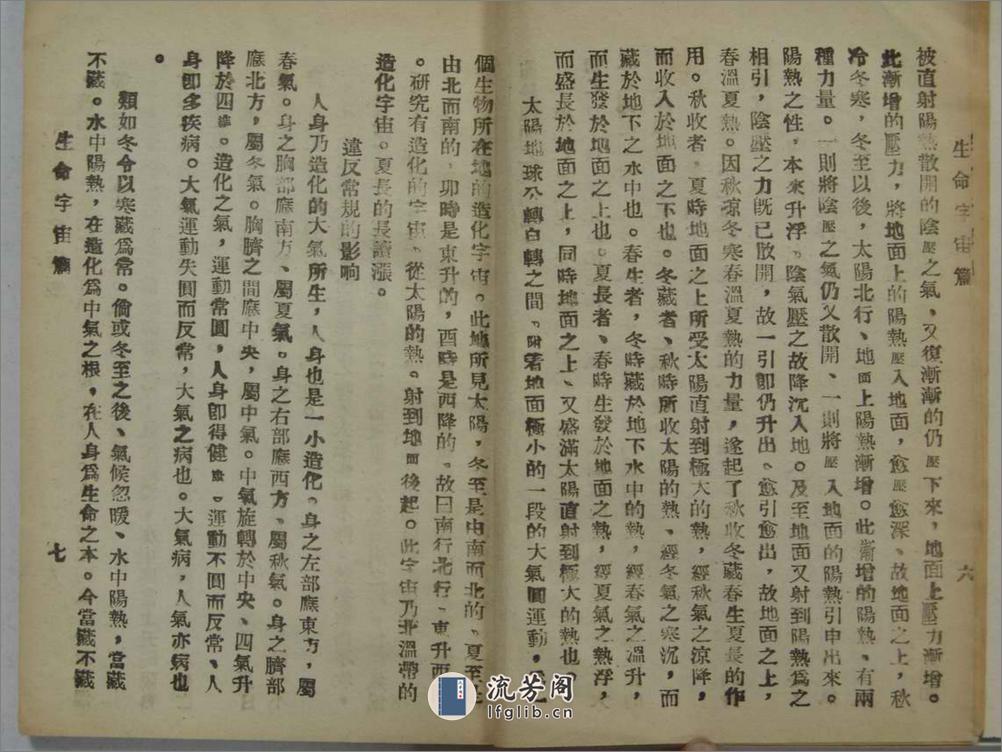 生命宇宙篇
六
被直射陽熱散開的陰壓之氣、又復漸漸的仍壓下來，地面上壓力漸增。
此漸增的壓力，將地面上的陽熱壓入地面，愈壓愈深、故地面之上，秋
冷冬寒，冬至以後，太陽北行、地面上陽熱漸增。此漸增的陽熱、有兩
種力量。一則將陰壓之氣仍又散開、一則將壓入地面的陽熱引申出來。
陽熱之性，本來升浮。陰氣壓之故降沉入地。及至地面又射到陽熱爲之
相引，陰壓之力旣已散開，故一引卽仍升出、愈引愈出，故地面之上，
春溫夏熱。因秋涼冬寒春溫夏熱的力量，遂起了秋收冬藏春生夏長的作
用。秋收者，夏時地面之上所受太陽直射到極大的熱，經秋氣之涼降，
而收入於地面之下也。冬藏者、秋時所收太陽的熱、經冬氣之寒沉，而
藏於地下之水中也。春生者，冬時藏於地下水中的熱，經春氣之溫升，
而生發於地面之上也。夏長者、春時生發於地面之熱，經夏氣之熱浮，
而盛長於地面之上，同時地面之上、又盛滿太陽直射到極大的熱也。
太陽地球公轉自轉之間、附着地面極小的一段的大氣圓運動，
個生物所在地的造化宇宙。此地所見太陽，冬至是由南而北的、夏至是
由北而南的，卯時是東升的，酉時是西降的。故曰南行北行、東升西
。研究有造化的宇宙、從太陽的熱。射到地面後起。此宇宙乃北溫帶的
造化宇宙。夏長的長讀漲。
違反常規的影响
人身乃造化的大氣所生，人身也是一小造化。身之左部應東方，屬
春氣。身之胸部應南方、屬夏氣。身之右部應西方、屬秋氣。身之臍部
應北方，屬冬氣。胸臍之間應中央，屬中氣。中氣旋轉於中央、四氣升
降於四維。造化之氣，運動常圓，人身卽得健康。運動不圓而反常、人
身卽多疾病。大氣運動失圓而反常，大氣之病也。大氣病，人氣亦病也
。
類如冬令以寒藏爲常。倘或冬至之後、氣候忽暖、水中陽熱，當藏
不藏。水中陽熱，在造化爲中氣之根，在人身爲生命之本。今當藏不藏
生命宇宙篇
七
流芳阁
lfglib.cn